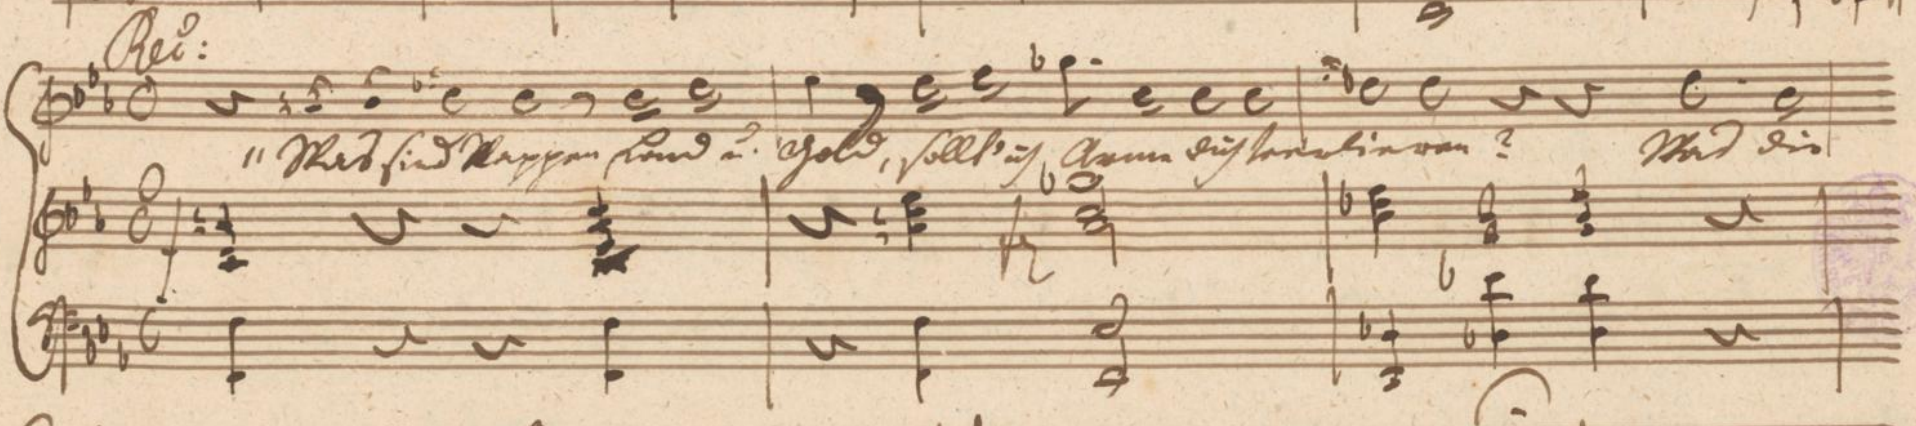 Rec:
"Was sind Wappen Land u. Gold, sollt' ich Arme dich verlieren? Was die
fz